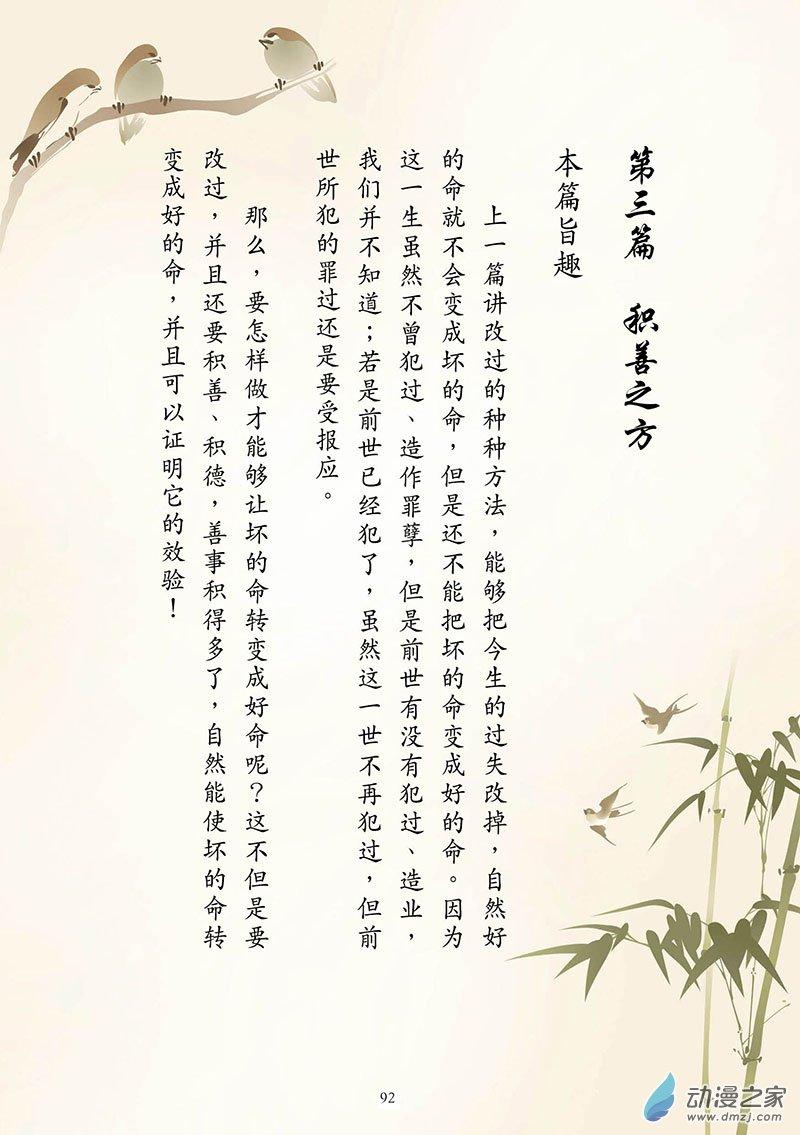 第三篇　积善之方
本篇旨趣
上一篇讲改过的种种方法，能够把今生的过失改掉，自然好
的命就不会变成坏的命，但是还不能把坏的命变成好的命。因为
这一生虽然不曾犯过、造作罪孽，但是前世有没有犯过、造业，
我们并不知道；若是前世已经犯了，虽然这一世不再犯过，但前
世所犯的罪过还是要受报应。
那么，要怎样做才能够让坏的命转变成好命呢？这不但是要
改过，并且还要积善、积德，善事积得多了，自然能使坏的命转
变成好的命，并且可以证明它的效验！
92
动漫之家
www.dmzj.com